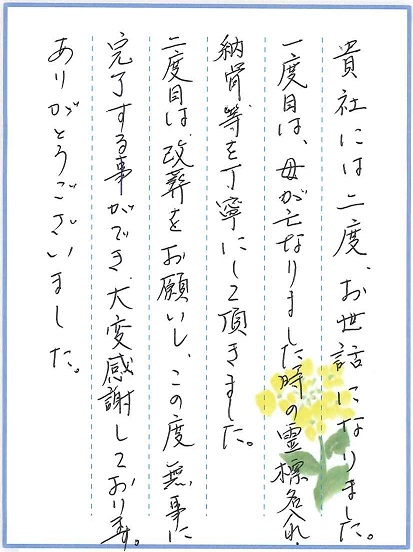 貴社には二度、お世話になりました。
一度目は、母が亡なりました時の霊標名入れ・
納骨等を丁寧にして頂きました。
二度目は、改葬をお願いし、この度無事に
完了する事ができ、大変感謝しております。
ありがとうございました。